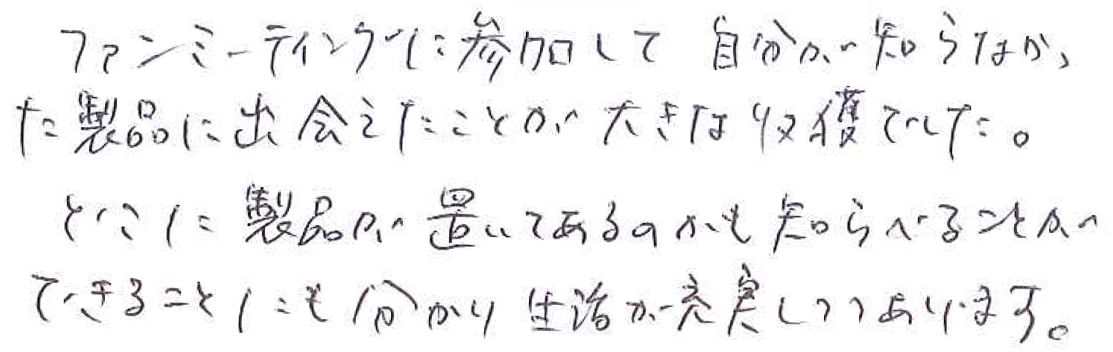 ファンミーティングに参加して 自分が知らなかっ
た製品に出会えたことが大きな収獲でした。
どこに製品が置いてあるのかも知らべることが
できることにも分かり生活が充実しつつあります。